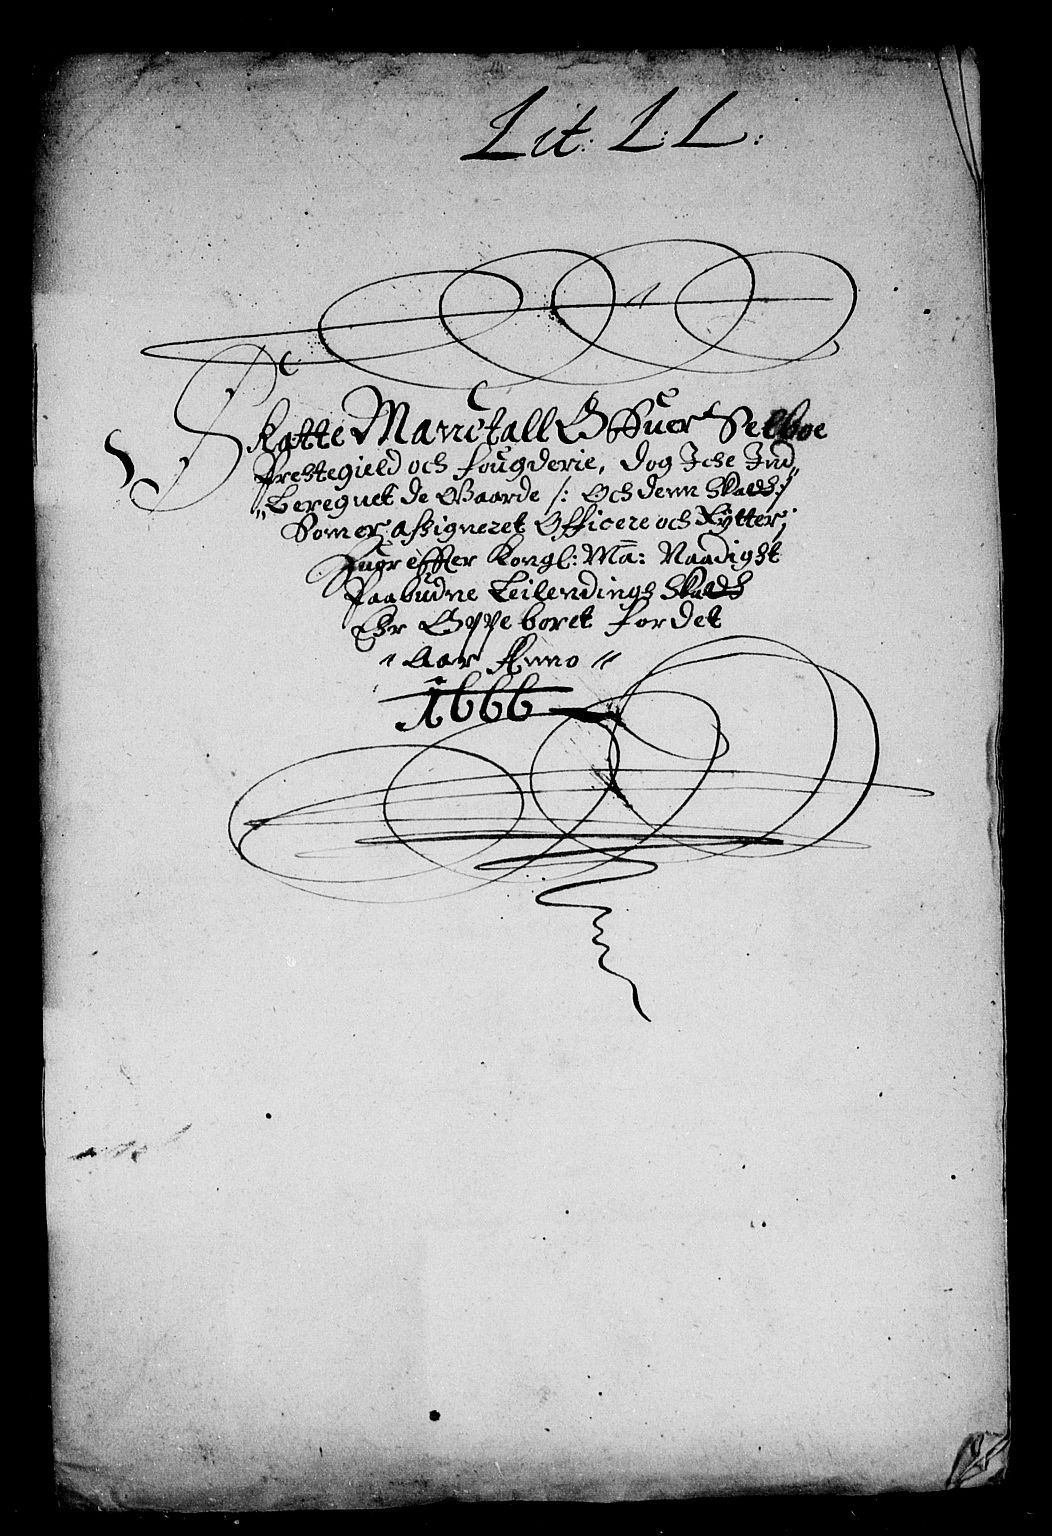 Lit: L: L:
Skatte Mandtall Offuer Selboe
Prestegield och fougderie, dog Iche Ind„
„beregnet de Gaarde /: Och denn Skatt :/
Som er assigneret Officere och Rytter,
Huor effter Kongl: Ma: Naadigst
Paabudne Leilendings Skatt
Ehr Oppeboret for det
Aar Anno
1666